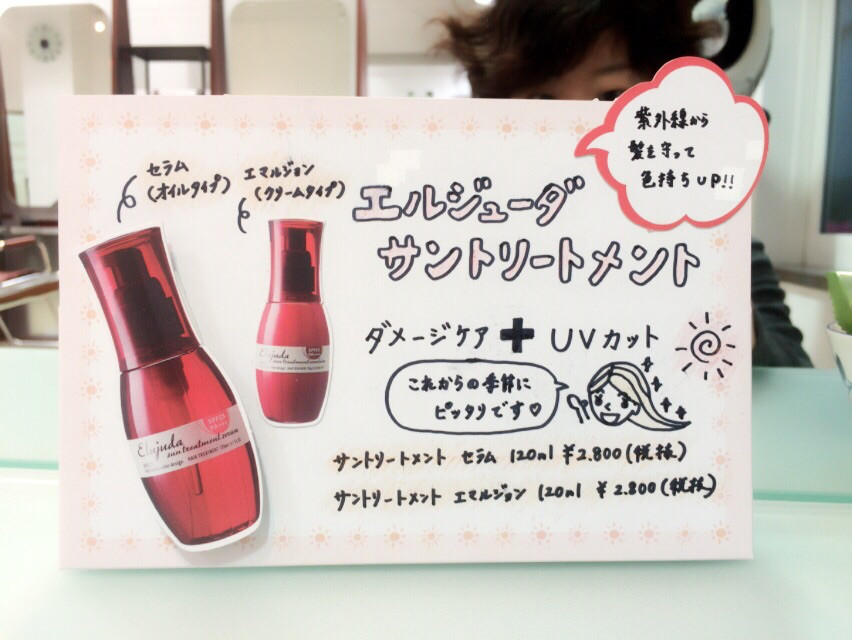 紫外線から
髪を守って
色持ちUP!!
セラム
(オイルタイプ)
エマルジョン
(クリームタイプ)
エルジューダ
サントリートメント
ダメージケア + UVカット
これからの季節に
ピッタリです♡
サントリートメント セラム 120ml ¥2.800(税抜)
サントリートメント エマルジョン 120ml ¥2.800(税抜)
Elujuda
sun treatment serum
Elujuda
sun treatment emulsion